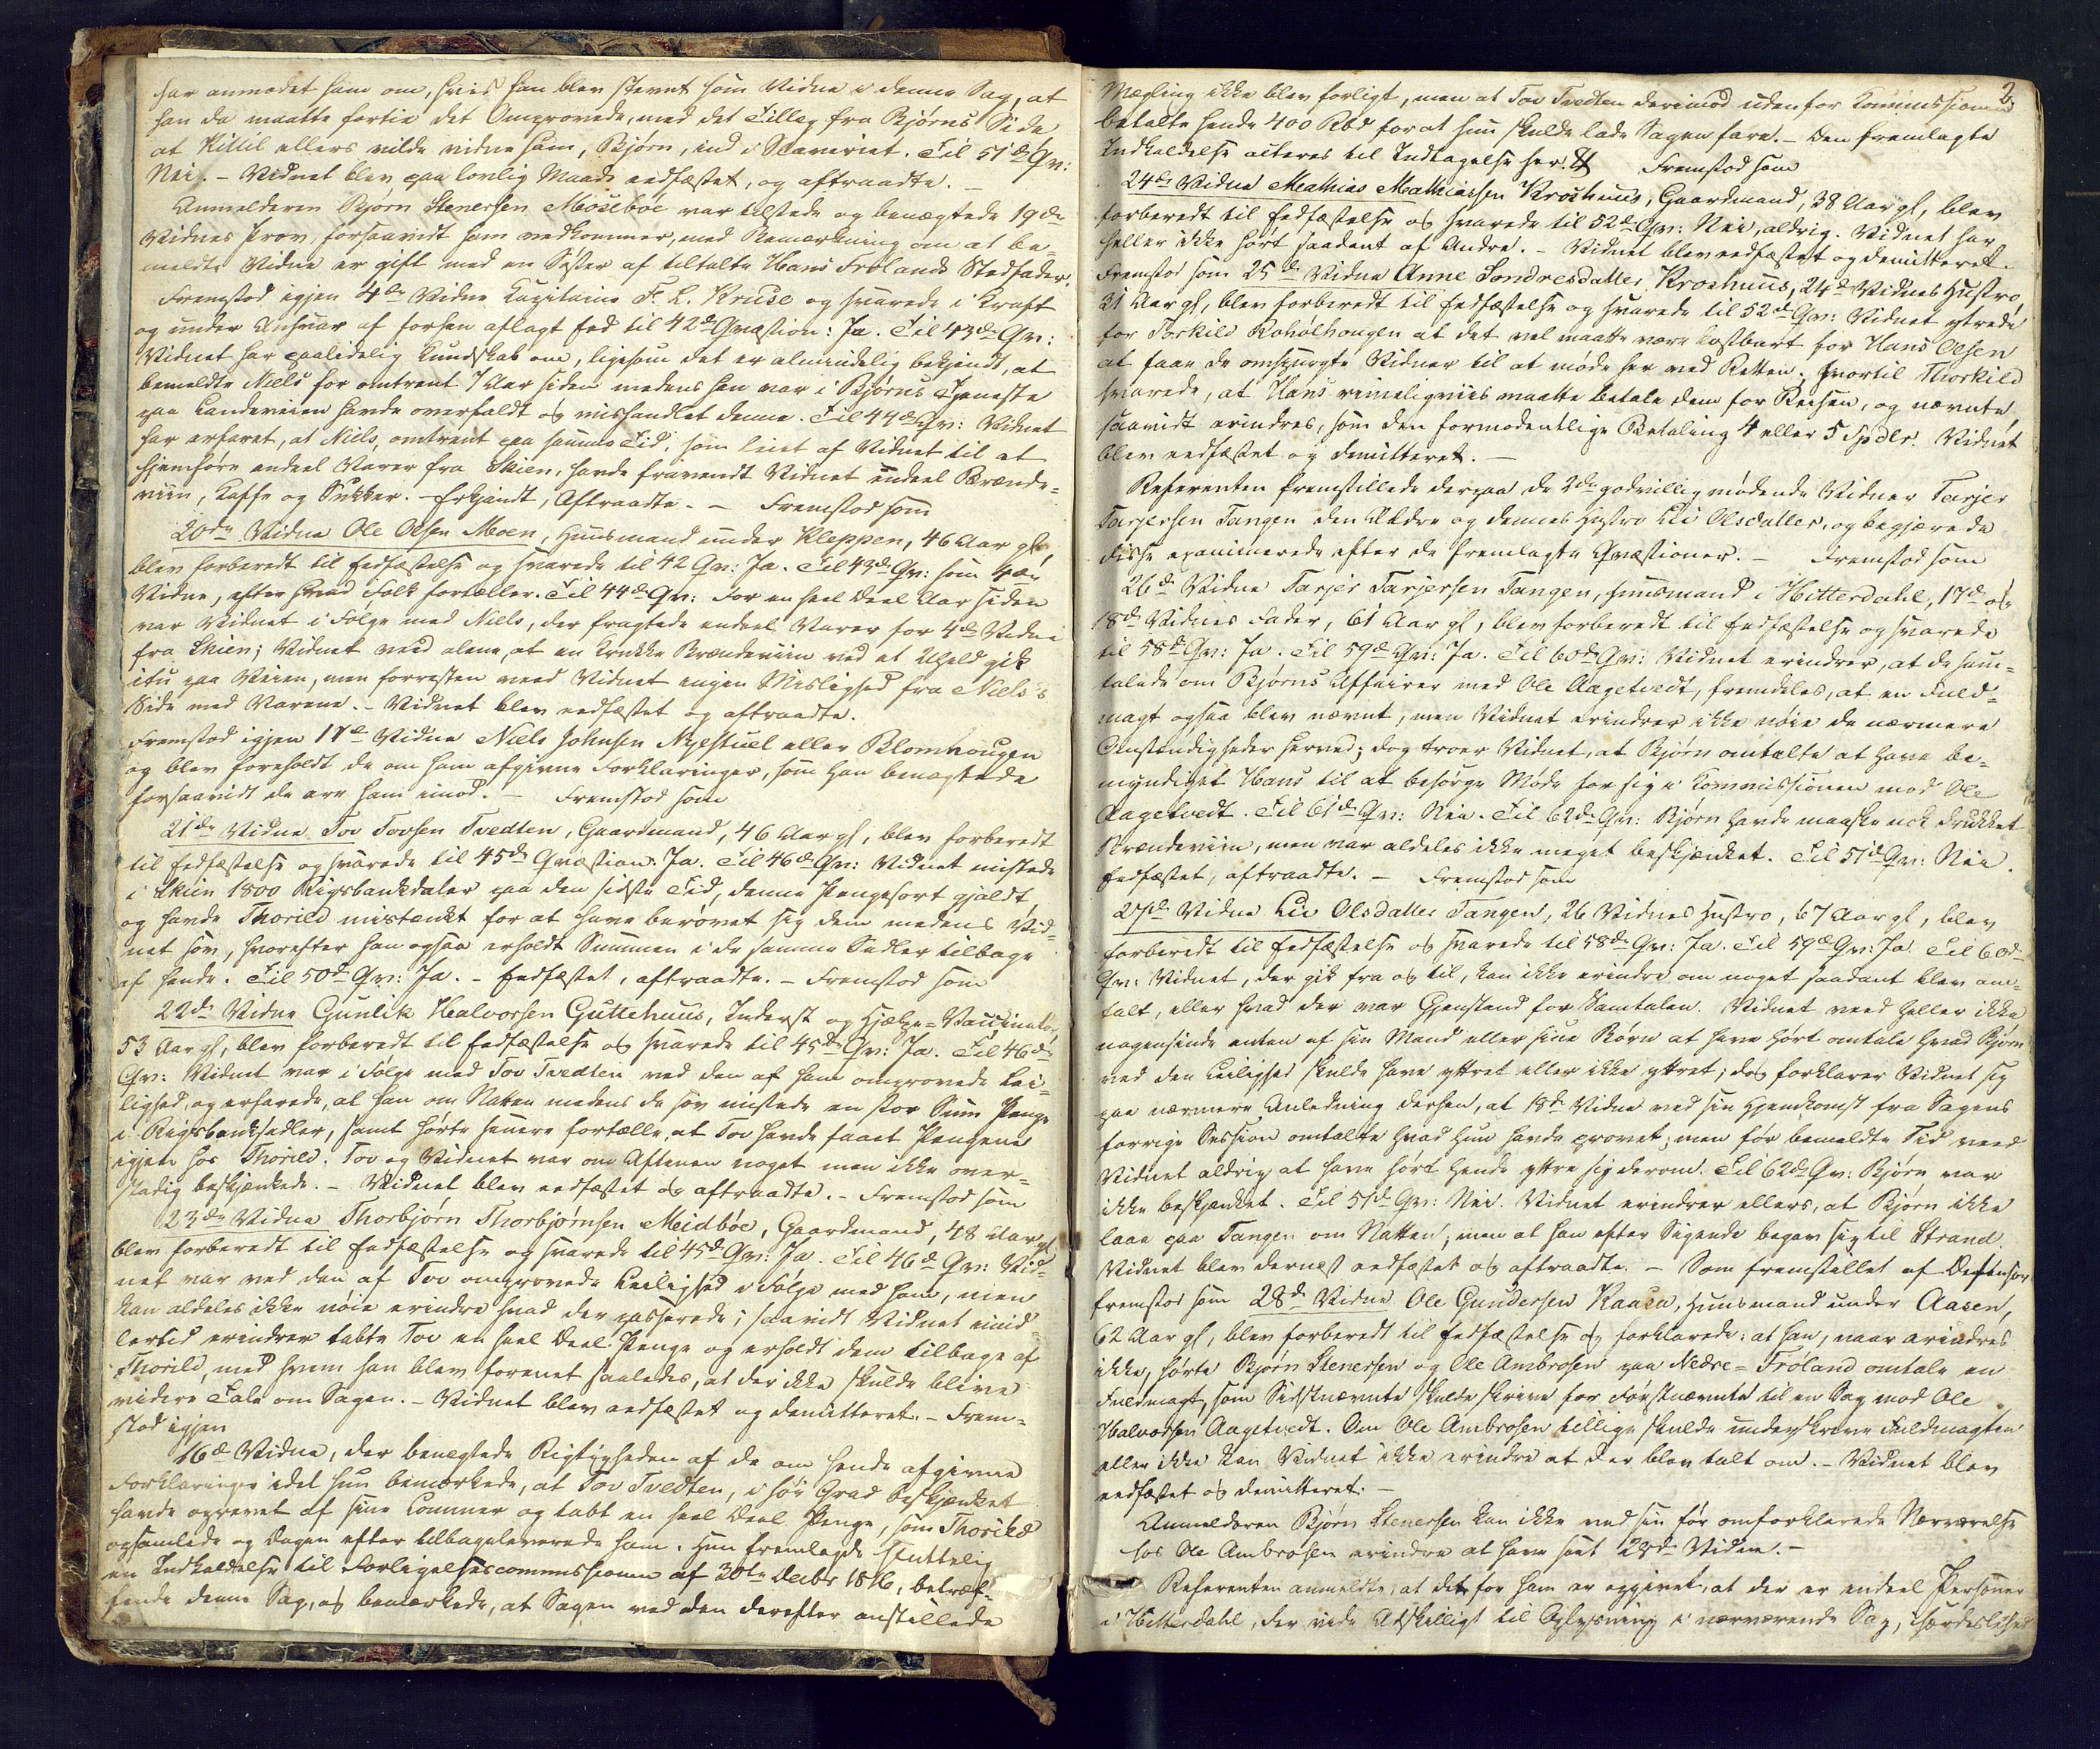 har anmodet ham om, hvis han blev stevnt som Vidne i denne Sag, at
han da maatte fortie det Omprovede, med det Tillæg fra Bjørns Side
at Kittil ellers vilde vidne ham, Bjørn, ind i Slaveriet. Til 51de Qv:
Nei. – Vidnet blev paa lovlig Maade eedfæstet, og aftraadte. –
Anmelderen Bjørn Stenersen Mosebøe var tilstede og benægtede 19de
Vidnes Prov, forsaavidt ham vedkommer, med Bemærkning om at be-
meldte Vidne er gift med en Søster af tiltalte Hans Frolands Stedfader.
Fremstod igjen 4de Vidne Capitaine F. L. Kruse og svarede i Kraft
og under Ansvar af forhen aflagt Eed til 42de Qvæstion: Ja. Til 43de Qv:
Vidnet har paalidelig Kundskab om, ligesom det er almindelig bekjendt, at
bemeldte Niels for omtrent 7 Aar siden medens han var i Bjørns Tjeneste
paa Landeveien havde overfaldt og mishandlet denne. Til 44de Qv: Vidnet
har erfaret, at Niels, omtrent paa samme Tid, som leiet af Vidnet til at
hjemføre endeel Varer fra Skien, havde fravendt Vidnet endeel Brænde-
viin, Kaffe og Sukker. – Erkjendt, Aftraadte. – Fremstod som
20de Vidne Ole Olsen Moen, Huusmand under Kleppen, 46 Aar gl.
blev forberedt til Eedfæstelse og svarede til 42 Qv: Ja. Til 43de Qv: som 4de
Vidne, efter hvad Folk fortæller. Til 44de Qv: For en heel Deel Aar siden
var Vidnet i Følge med Niels, der fragtede endeel Varer for 4de Vidne
fra Skien; Vidnet veed alene, at en Krukke Brændeviin ved et Uheld gik
itu paa Veien, men forresten veed Vidnet ingen Mislighed fra Niels's
Side med Varene. – Vidnet blev eedfæstet og aftraadte.
Fremstod igjen 17de Vidne Niels Johnsen Nyestuel eller Blomhougen
og blev foreholdt de om ham afgivne Forklaringer, som han benægtede
forsaavidt de ere ham imod. – Fremstod som
21de Vidne Tov Tovsen Tvedten, Gaardmand, 46 Aar gl, blev forberedt
til Eedfæstelse og svarede til 45de Qvæstion: Ja. Til 46de Qv: Vidnet mistede
i Skien 1800 Rigsbankdaler paa den sidste Tid, denne Pengesort gjaldt,
og havde Thorild mistænkt for at have berøvet sig dem medens Vid-
net sov, hvorefter han ogsaa erholdt Summen i de samme Sedler tilbage
af hende. Til 50de Qv: Ja. – Eedfæstet, aftraadte. – Fremstod som
22de Vidne Gunlik Halvorsen Guttehuus, Inderst og Hjælpe-Vaccinatør
53 Aar gl, blev forberedt til Eedfæstelse og svarede til 45de Qv: Ja. Til 46de
Qv: Vidnet var i Følge med Tov Tvedten ved den af ham omprovede Lei-
lighed, og erfarede, at han om Natten medens de sov mistede en stor Sum Penge
i Rigsbanksedler, samt hørte senere fortælle, at Tov havde faaet Pengene
igjen hos Thorild. Tov og Vidnet var om Aftenen noget men ikke over-
stadig beskjænkede. – Vidnet blev eedfæstet og aftraadte. – Fremstod som
23de Vidne Thorbjørn Thorbjørnsen Meidbøe, Gaardmand, 48 Aar gl
blev forberedt til Eedfæstelse og svarede til 45de Qv: Ja. Til 46de Qv: Vid-
net var ved den af Tov omprovede Leilighed i Følge med ham, men
kan aldeles ikke nøie erindre hvad der passerede; saavidt Vidnet imid-
lertid erindrer tabte Tov en heel Deel Penge og erholdt dem tilbage af
Thorild, med hvem han blev forenet saaledes, at der ikke skulde blive
videre Tale om Sagen. – Vidnet blev eedfæstet og demitteret. – Frem-
stod igjen
16de Vidne, der benægtede Rigtigheden af de om hende afgivne
Forklaringer idet hun bemærkede, at Tov Tvedten, i høi Grad beskjænket
havde oprevet af sine Lommer og tabt en heel Deel Penge, som Thorild
opsamlede og Dagen efter tilbageleverede ham. Hun fremlagde sluttelig
en Indkaldelse til Forligelsescommissionen af 30te Decbr 1816, betræf-
fende denne Sag, og bemærkede, at Sagen ved den derefter anstillede
2
Mægling ikke blev forligt, men at Tov Tvedten derimod udenfor Kommissionen
betalte hende 400 Rbd for at hun skulde lade Sagen fare. – Den fremlagte
Indkaldelse aiteres til Indtagelse her. Fremstod som
24de Vidne Mathias Mathiassen Kroshuus, Gaardmand, 38 Aar gl, blev
forberedt til Eedfæstelse og svarede til 52de Qv: Nei, aldrig. Vidnet har
heller ikke hørt saadant af Andre. – Vidnet blev eedfæstet og demitteret.
Fremstod som 25de Vidne Anne Sondresdatter Kroshuus, 24de Vidnes Hustro,
31 Aar gl, blev forberedt til Eedfæstelse og svarede til 52de Qv: Vidnet ytrede
for Torkild Kobølhougen at det vel maatte være kostbart for Hans Olsen
at faae de omspurgte Vidner til at møde her ved Retten; hvortil Thorkild
svarede, at Hans rimeligviis maatte betale dem for Reisen, og nævnte,
saavidt erindres, som den formodentlige Betaling 4 eller 5 Spdlr. Vidnet
blev eedfæstet og demitteret. –
Referenten fremstillede derpaa de 2de godvillig mødende Vidner Tarjer
Tarjersen Tangen den Ældre og dennes Hustro Liv Olsdatter, og begjærede
disse examinerede efter de fremlagte Qvæstioner. – Fremstod som
26de Vidne Tarjer Tarjersen Tangen, Huusmand i Hitterdahl, 17de og
18de Vidnes Fader, 61 Aar gl, blev forberedt til Eedfæstelse og svarede
til 58de Qv: Ja. Til 59de Qv: Ja. Til 60de Qv: Vidnet erindrer, at de sam-
talede om Bjørns Affairer med Ole Aagetvedt, fremdeles, at en Fuld-
magt ogsaa blev nævnt, men Vidnet erindrer ikke nøie de nærmere
Omstændigheder herved; dog troer Vidnet, at Bjørn omtalte at have be-
myndiget Hans til at besørge Møde for sig i Kommissionen mod Ole
Aagetvedt. Til 61de Qv: Nei. Til 62de Qv: Bjørn havde maaske nok drukket
Brændeviin, men var aldeles ikke meget beskjænket. Til 51de Qv: Nei.
Eedfæstet, aftraadte. – Fremstod som
27de Vidne Liv Olsdatter Tangen, 26 Vidnes Hustro, 67 Aar gl, blev
forberedt til Eedfæstelse og svarede til 58de Qv: Ja. Til 59de Qv: Ja. Til 60de
Qv: Vidnet, der gik fra og til, kan ikke erindre om noget saadant blev om-
talt, eller hvad der var Gjenstand for Samtalen. Vidnet veed heller ikke
nogensinde enten af sin Mand eller sine Børn at have hørt omtale hvad Bjørn
ved den Leilighed skulde have yttret eller ikke yttret; dog forklarer Vidnet sig
paa nærmere Anledning derhen, at 18de Vidne ved sin Hjemkomst fra Sagens
forrige Session omtalte hvad hun havde provet; men før bemeldte Tid veed
Vidnet aldrig at have hørt hende yttre sig derom. Til 62de Qv: Bjørn var
ikke beskjænket. Til 51de Qv: Nei. Vidnet erindrer ellers, at Bjørn ikke
laae paa Tangen om Natten, men at han efter Sigende begav sig til Strand.
Vidnet blev dernæst eedfæstet og aftraadte. – Som fremstillet af Defensor
fremstod som 28de Vidne Ole Gundersen Kaasa, Huusmand under Aasen,
62 Aar gl, blev forberedt til Eedfæstelse og forklarede: at han, naar erindres
ikke, hørte Bjørn Stenersen og Ole Ambrosen paa Nedre-Frøland omtale en
Fuldmagt, som Sidstnævnte skulde skrive for Førstnævnte til en Sag mod Ole
Halvorsen Aagetvedt. Om Ole Ambrosen tillige skulde underskrive Fuldmagten
eller ikke kan Vidnet ikke erindre at der blev talt om. – Vidnet blev
eedfæstet og demitteret. –
Anmelderen Bjørn Stenersen kan ikke ved sin før omforklarede Nærværelse
hos Ole Ambrosen erindre at have seet 28de Vidne. –
Referenten anmeldte, at det for ham er opgivet, at der er endeel Personer
i Hitterdahl, der vide Adskilligt til Oplysning i nærværende Sag, ihærdeleshed